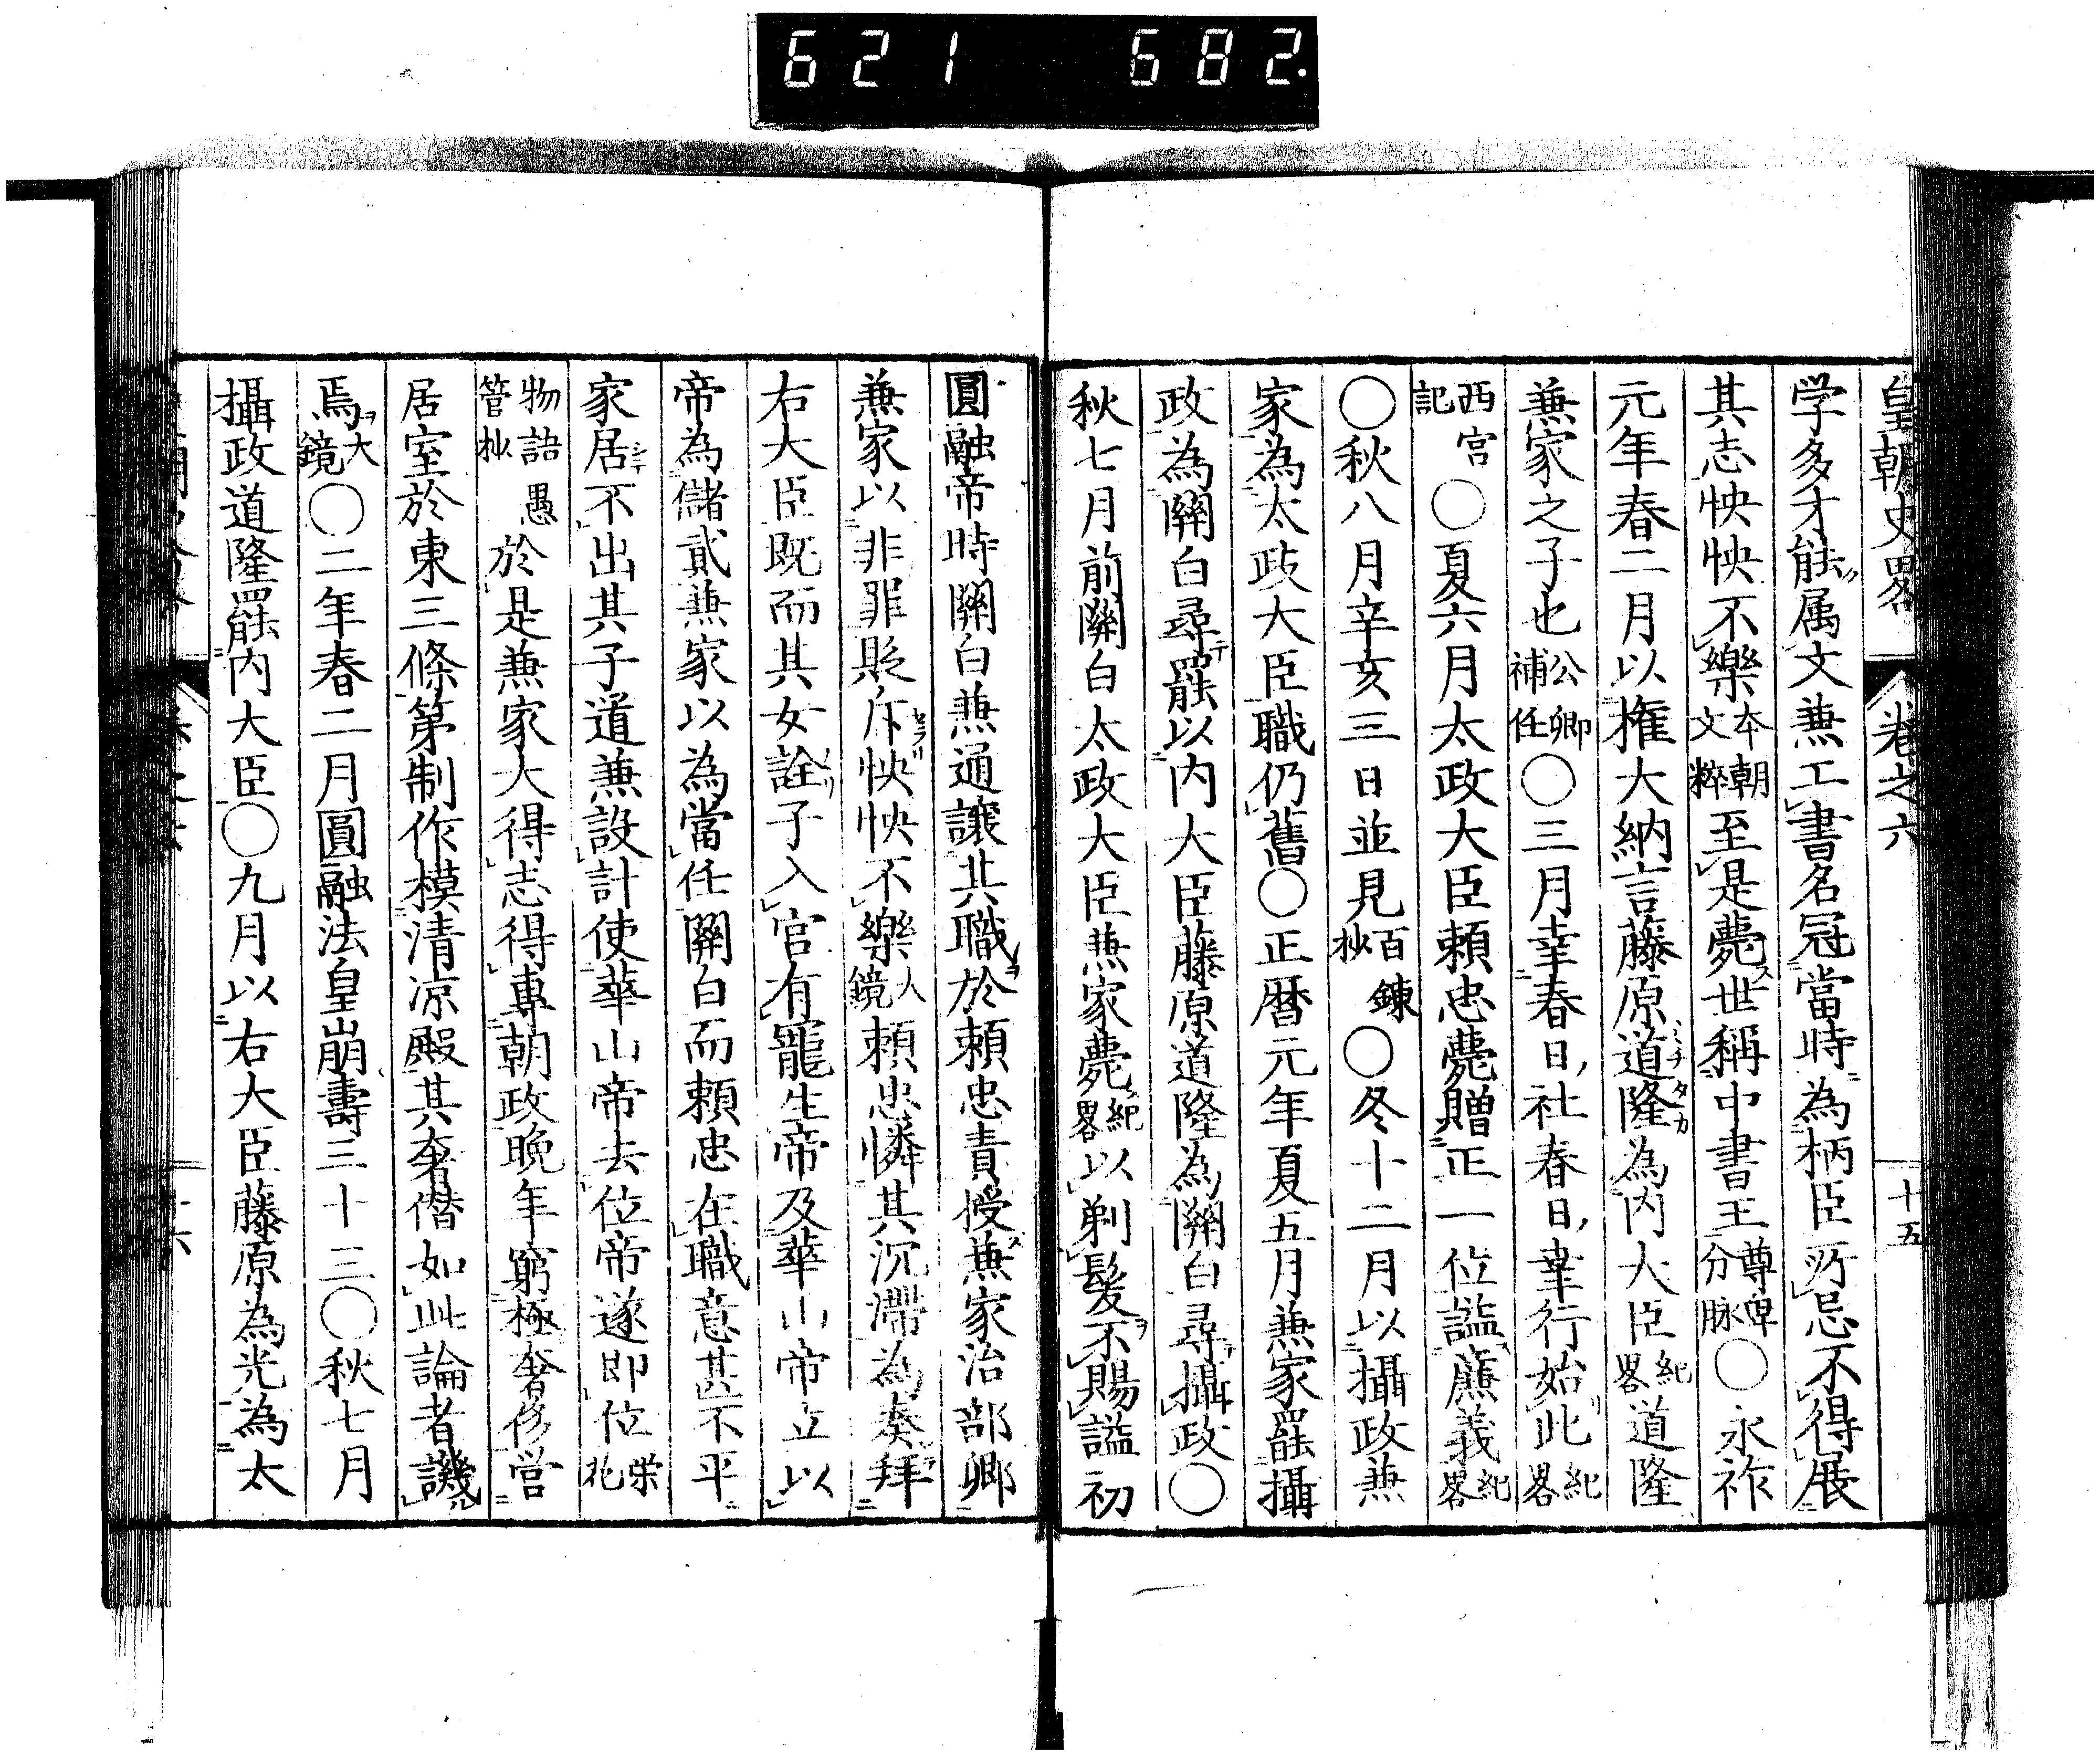 621 682.
皇朝史畧 卷之六 十五
学多才能属文兼工書名冠當時為柄臣所忌不得展
其志怏怏不樂本朝文粹至是薨世稱中書王尊卑分脉〇永祚
元年春二月以権大納言藤原道隆ミチタカ為内大臣紀畧道隆
兼家之子也公卿補任〇三月幸春日社春日幸行始此紀畧
西宮記〇夏六月太政大臣頼忠薨贈正一位謚廉義紀畧
〇秋八月辛亥三日並見百錬抄〇冬十二月以攝政兼
家為太政大臣職仍舊〇正暦元年夏五月兼家罷攝
政為關白尋罷以内大臣藤原道隆為關白尋攝政〇
秋七月前關白太政大臣兼家薨紀畧以剃髪不賜謚初
圓融帝時關白兼通譲其職於頼忠責授兼家治部卿
兼家以非罪貶斥怏怏不樂大鏡頼忠憐其沉滞為奏拜
右大臣既而其女詮子入宮有寵生帝及華山帝立以
帝為儲貳兼家以為當任關白而頼忠在職意甚不平
家居不出其子道兼設計使華山帝去位帝遂即位栄花
物語愚管抄於是兼家大得志得専朝政晩年窮極奢侈営
居室於東三條第制作模清凉殿其奢僭如此論者譏
焉大鏡〇二年春二月圓融法皇崩壽三十三〇秋七月
攝政道隆罷内大臣〇九月以右大臣藤原為光為太